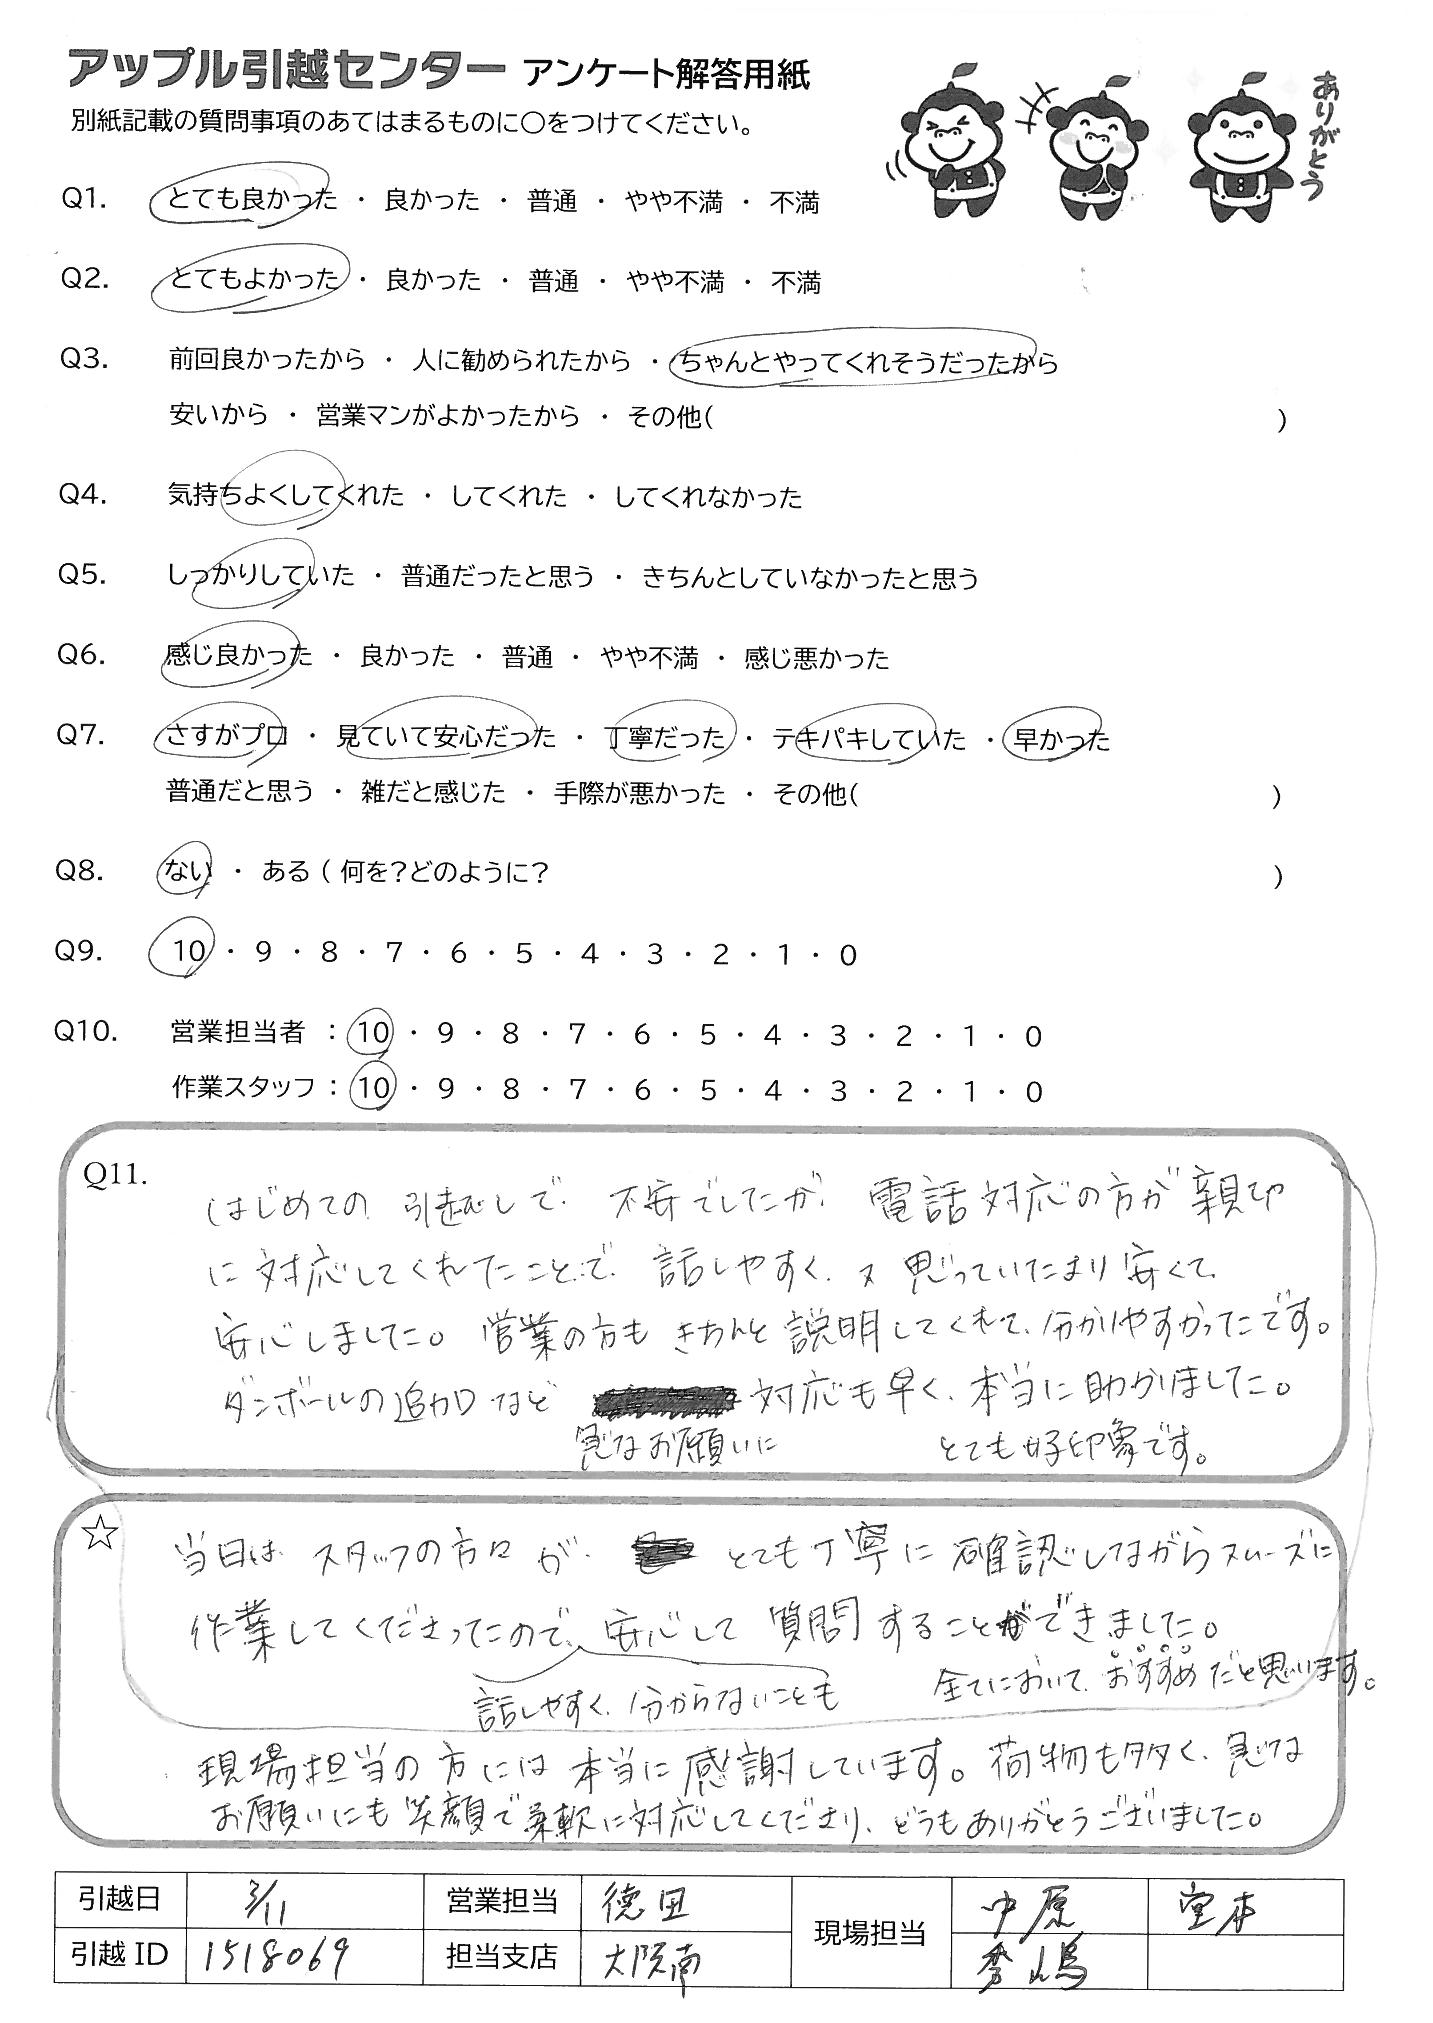 アップル引越センター アンケート解答用紙
別紙記載の質問事項のあてはまるものに〇をつけてください。
ありがとう
Q1. とても良かった ・ 良かった ・ 普通 ・ やや不満 ・ 不満
Q2. とてもよかった ・ 良かった ・ 普通 ・ やや不満 ・ 不満
Q3. 前回良かったから ・ 人に勧められたから ・ ちゃんとやってくれそうだったから
安いから ・ 営業マンがよかったから ・ その他( )
Q4. 気持ちよくしてくれた ・ してくれた ・ してくれなかった
Q5. しっかりしていた ・ 普通だったと思う ・ きちんとしていなかったと思う
Q6. 感じ良かった ・ 良かった ・ 普通 ・ やや不満 ・ 感じ悪かった
Q7. さすがプロ ・ 見ていて安心だった ・ 丁寧だった ・ テキパキしていた ・ 早かった
普通だと思う ・ 雑だと感じた ・ 手際が悪かった ・ その他( )
Q8. ない ・ ある ( 何を?どのように? )
Q9. 10 ・ 9 ・ 8 ・ 7 ・ 6 ・ 5 ・ 4 ・ 3 ・ 2 ・ 1 ・ 0
Q10. 営業担当者 : 10 ・ 9 ・ 8 ・ 7 ・ 6 ・ 5 ・ 4 ・ 3 ・ 2 ・ 1 ・ 0
作業スタッフ : 10 ・ 9 ・ 8 ・ 7 ・ 6 ・ 5 ・ 4 ・ 3 ・ 2 ・ 1 ・ 0
Q11.
はじめての引越しで、不安でしたが、電話対応の方が親切
に対応してくれたことで、話しやすく、又思っていたより安くて、
安心しました。営業の方もきちんと説明してくれて、分かりやすかったです。
ダンボールの追加など 対応も早く、本当に助かりました。
急なお願いに とても好印象です。
☆ 当日は、スタッフの方々が、とても丁寧に確認しながらスムーズに
作業してくださったので、安心して質問することができました。
話しやすく、分からないことも 全てにおいて、おすすめだと思います。
現場担当の方には本当に感謝しています。荷物も多く、急な
お願いにも笑顔で柔軟に対応してくださり、どうもありがとうございました。
引越日 3/11 営業担当 徳田 現場担当 中原 堂本
引越ID 1518069 担当支店 大阪南 秀嶋